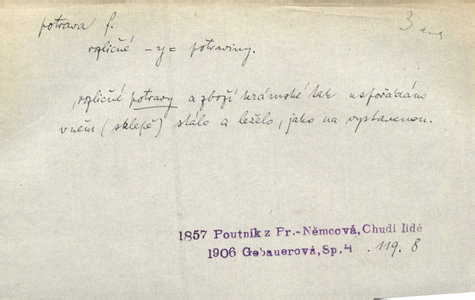 potrava f.
rozličné -y = potraviny.
„rozličné potravy a zboží krámské tak uspořádáno
v něm (sklepě) stálo a leželo, jako na vystavenou.
1857 Poutník z Pr.-Němcová, Chudí lidé
1906 Gebauerová, Sp.4 . 119. 8